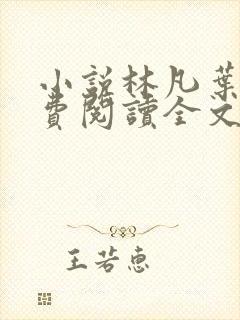 小說林凡葉
費閱讀全文
王若惠